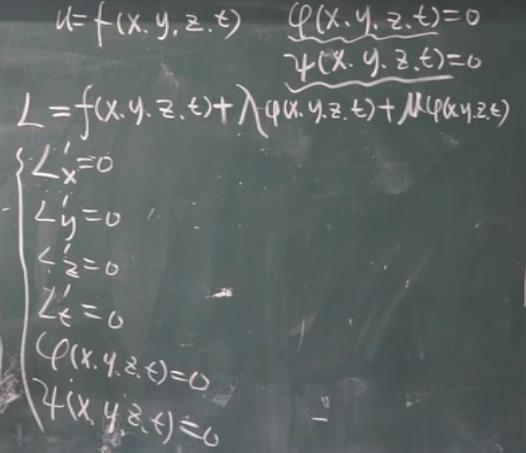 u=f(x.y.z.t) φ(x.y.z.t)=0
ψ(x.y.z.t)=0
L=f(x.y.z.t)+λφ(x.y.z.t)+μφ(x.y.z.t)
L'x=0
L'y=0
L'z=0
L't=0
φ(x.y.z.t)=0
ψ(x.y.z.t)=0